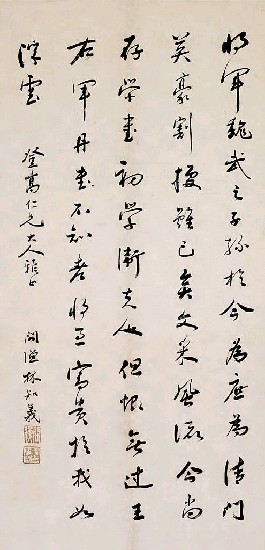 將軍魏武之子孫於今為庶為清門
英豪割據雖已矣文采風流今尚
存學書初學衛夫人但恨無過王
右軍丹青不知老將至富貴於我如
浮雲
登高仁兄大人雅正
問漁林知義